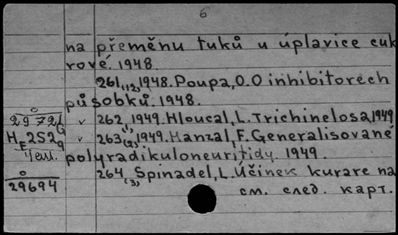 6
na přeměnu tuků u úplavice cuk
rové. 1948.
261,(12),1948. Poupa, O. O inhibitorech
působků. 1948.
29726 v 262,(1),1949. Hloucal, L. Trichinelosa, 1949
HE 252 v 263,(2),1949. Hanzal, F. Generalisované
polyradikuloneuritidy. 1949.
29694 264,(3), Spinadel, L. Účinek kurare na
см. след. карт.